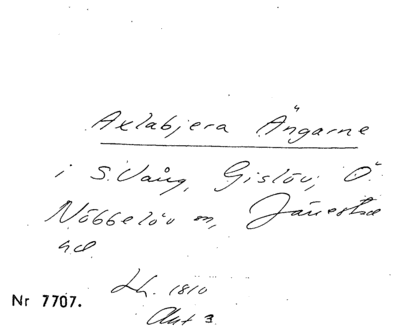 Axlabjera Ängarne
i S. Vång, Gislöv, Ö.
Nöbbelöv m, Järrestad
hd.
Lh. 1810
Akt 3
Nr 7707.